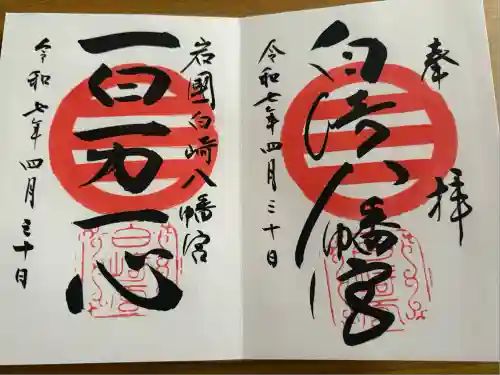 奉拝
白崎八幡宮
令和七年四月三十日
岩國白崎八幡宮
一百万一心
令和七年四月三十日